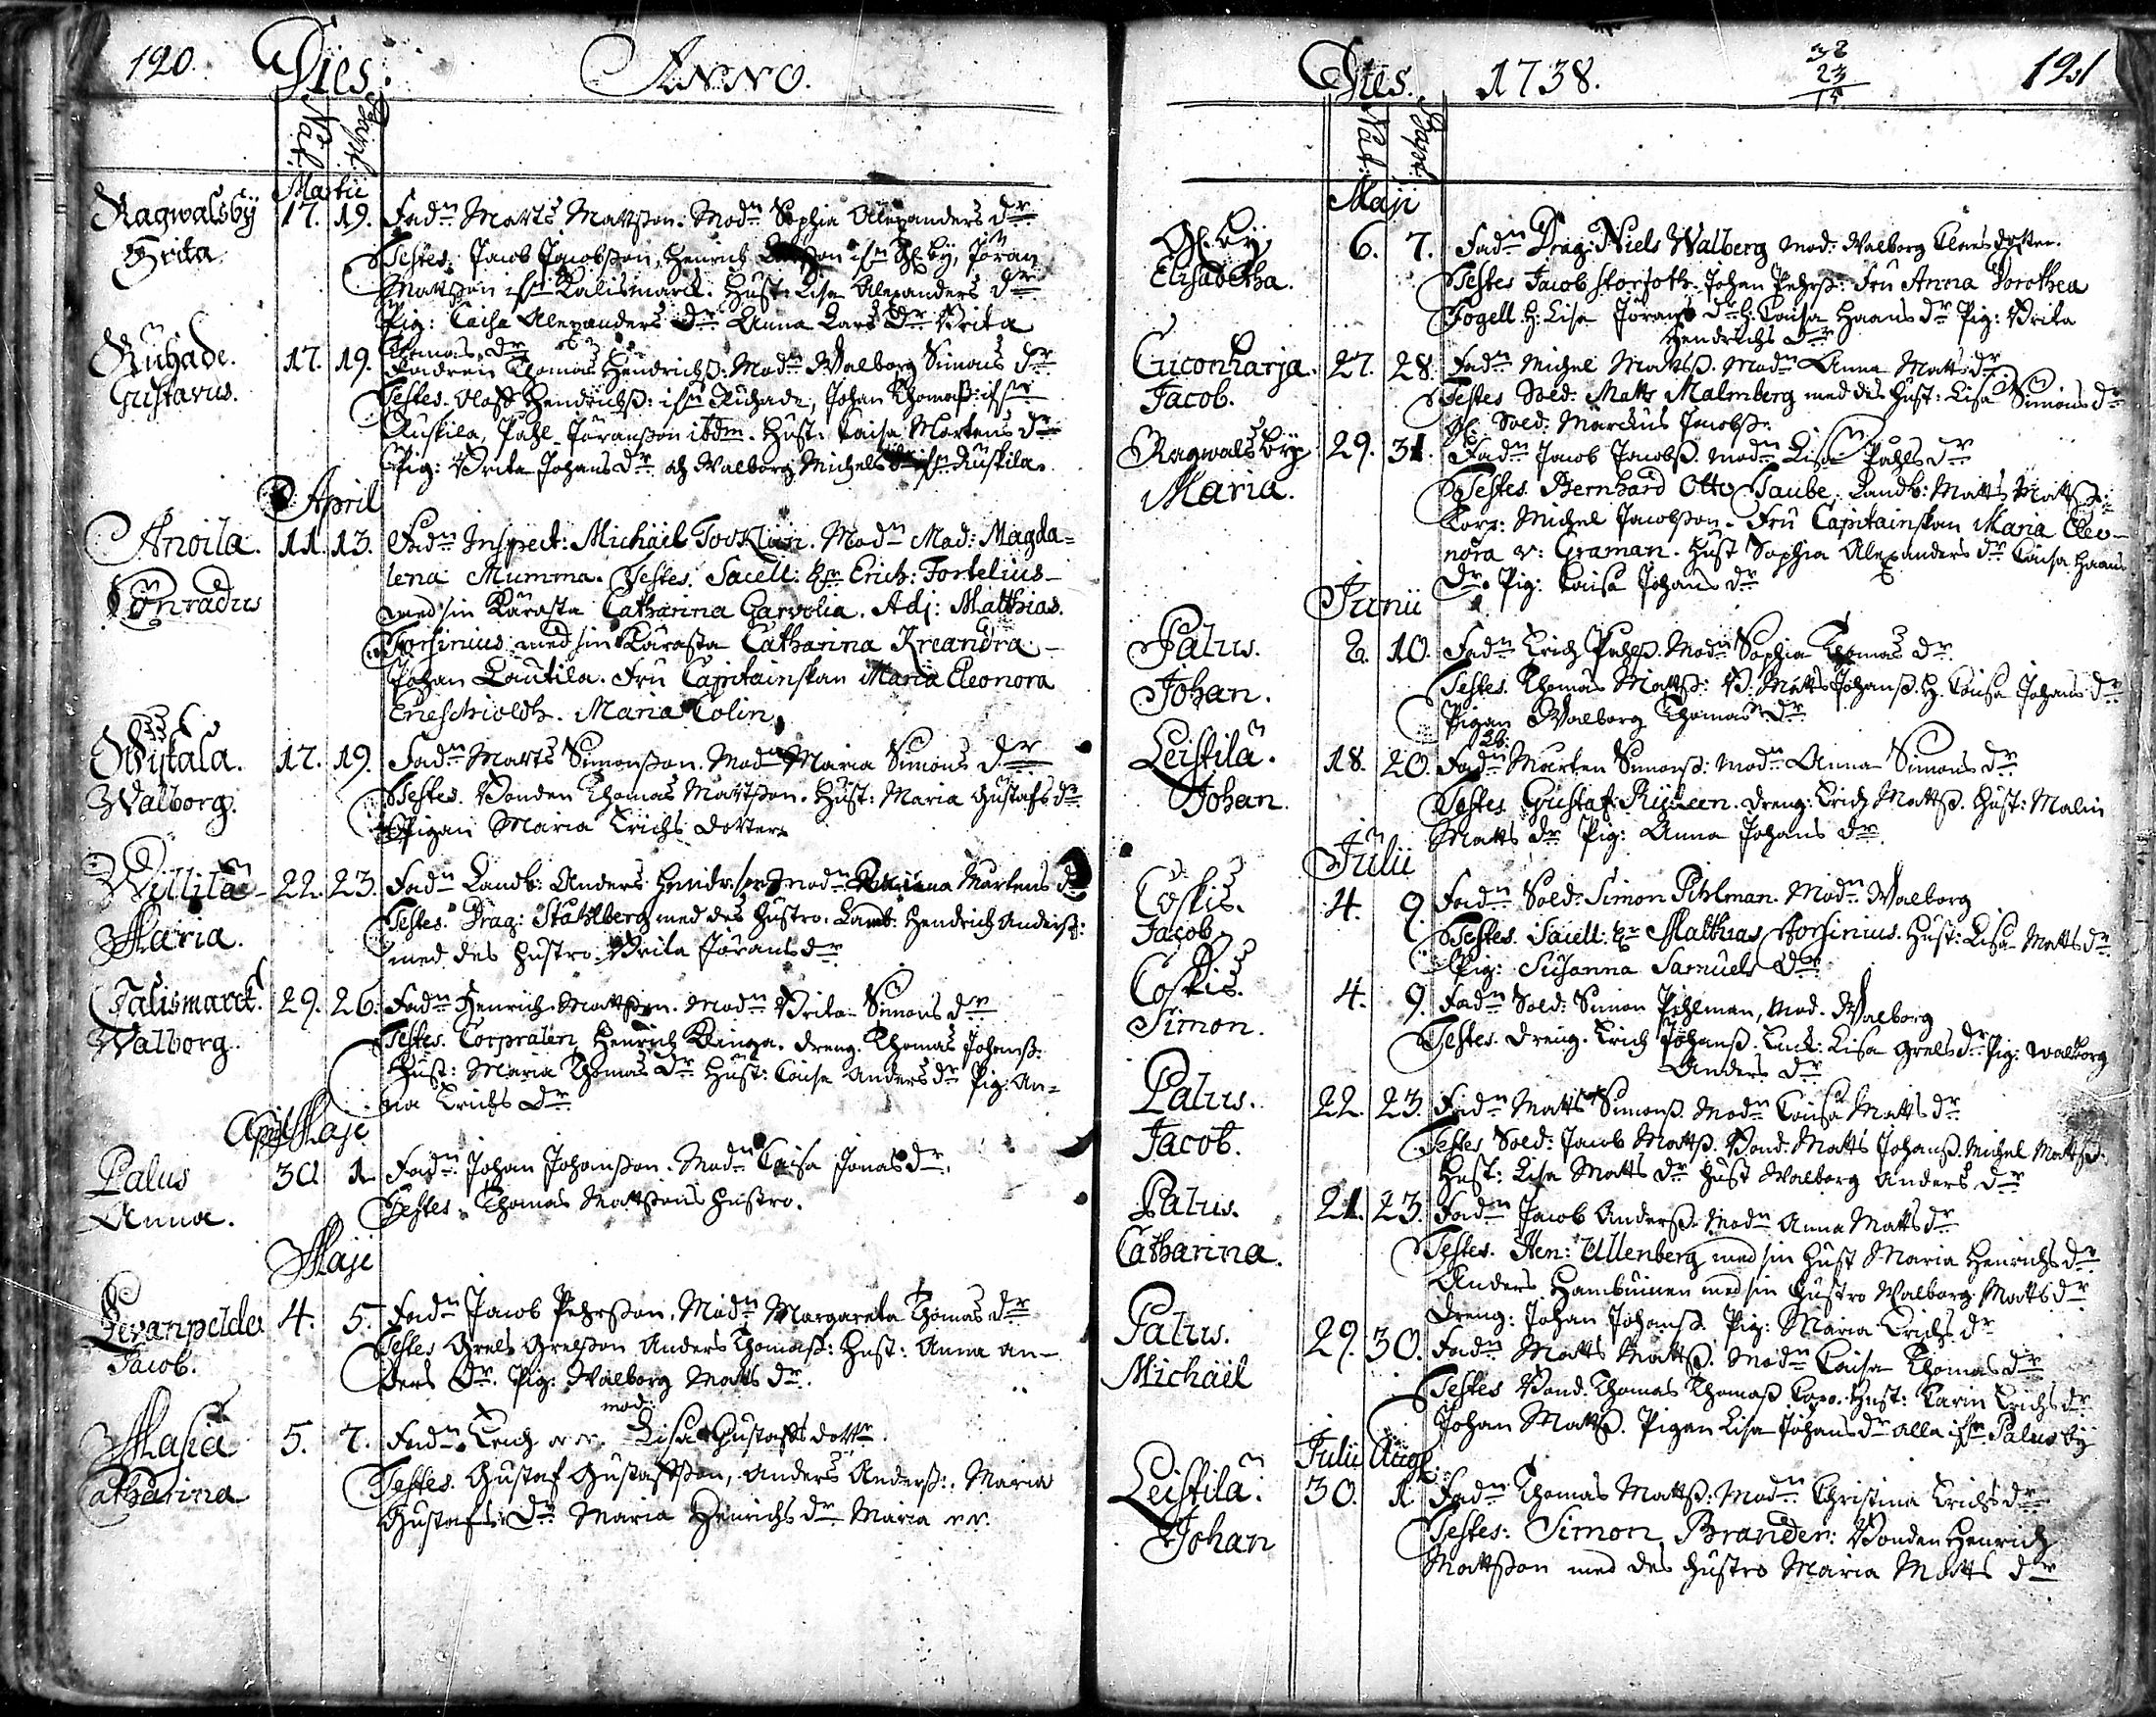 120. Dies. Anno.
Nat. Bapt.
Martii
Ragwalsbÿ 17. 19. Fadn Matts Mattsson. Modn Sophia Alexanders dr
Brita. Testes. Jacob Jacobsson, Henrich ifrn Gl.by, Jöran
Mattsson ifrn Kalismarck. Hust. Lisa Alexanders dr
Pig: Caisa Alexanders dr Anna Lars dr Brita
Thomas dr
Ruhade. 17. 19. Fadren Thomas Hendrichss: Modn Walborg Simons dr
Gustavus. Testes. Oloff Hendrichss: ifrn Ruhade, Johan Thomass: ifrn
Ruskila, Påhl Jöransson ibdm. Hust. Caisa Mårtens dr
Pig: Brita Johans dr och Walborg Michels dr ifrn Ruskila.
April
Anoila. 11. 13. Fadn Inspect: Michäel Tocklin. Modn Mad: Magda=
Conradus lena Mumma. Testes. Sacell: Hr Erich: Fortelius
med sin Kärasta Catharina Garvolia. Adj: Matthias.
Forsinius med sin Kärasta Catharina Kreandra
Johan Lautila. Fru Capitainskan Maria Eleonora
Eneschioldh. Maria Colin.
Wijtala. 17. 19. Fadn Matts Simonsson. Modn Maria Simons dr
Walborg. Testes. Bonden Thomas Mattsson. Hust: Maria Gustafs dr
Pigan Maria Erichs dotter
Willila 22. 23. Fadn Landb: Anders Hendr. son Modn Mårtens dr
Maria. Testes. Drag: Ståhlberg med des hustro. Landb. Hendrich Anderss:
med des hustro. Brita Jörans dr
Calismarck. 29. 26. Fadn Henrich Mattsson. Modn Brita Simons dr
Walborg. Testes. Corpralen Henrich Ringa. Dreng. Thomas Johanss.
Hust: Maria Thomas dr Hust: Caisa Anders dr Pig: An=
na Erichs dr
April Maji
Palus 30. 1. Fadn Johan Johansson. Modn Caisa Jonas dr.
Anna. Testes. Thomas Mattssons hustro.
Maji
Levanpelde 4. 5. Fadn Jacob Pehrsson. Modn Margareta Thomas dr
Jacob. Testes Grels Grelsson Anders Thomass: Hust: Anna An-
ders dr. Pig: Walborg Matts dr.
mod:
Masia 5. 7. Fadn Erich Lisa Gustafs dottr
Catharina Testes. Gustaf Gustafsson, Anders Anderss: Maria
Gustafs dr Maria Henrichs dr Maria
Dies. 1738. 38 121
23
15
Nat. Bapt.
Maji
Gl.bÿ 6. 7. Fadn Drag: Niels Walberg Mod: Walborg Claes dotter.
Elisabetha. Testes Jacob Storfoth. Johan Pehrss. Fru Anna Dorothea
Fogell. H: Lisa Jörans dr H. Caisa Hans dr Pig: Brita
Hendrichs dr
Cuconharja. 27. 28. Fadn Michel Mattss. Modn Anna Matts dr
Jacob. Testes Sold: Matts Malmberg med des Hust: Lisa Simons dr
Gl. Sold: Marckus Jacobss.
Ragwalsbÿ 29. 31. Fadn Jacob Jacobss. Modn Lisa Påhls dr
Maria. Testes. Bernhard Otto Taube. Landb: Matts Mattss:
Corp: Michel Jacobsson. Fru Capitainskan Maria Eleo-
nora v: Graman. Hust Sophia Alexanders dr Caisa Hans
dr. Pig: Caisa Johans dr
Junii
Palus. 8. 10. Fadn Erich Påhlss. Modn Sophia Thomas dr
Johan. Testes. Thomas Mattss: B. Matts Johanss. H. Caisa Johans dr
Pigan Walborg Thomas dr
Leistila. 18. 20. Fadn Mårten Simonss: Modn Anna Simons dr
Johan. Testes. Gustaf Rydeen. Dreng: Erich Mattss. Hust: Malin
Matts dr Pig: Anna Johans dr
Julii
Coskis. 4. 9. Fadn Sold: Simon Pihlman. Modn Walborg
Jacob. Testes. Sacell: Hr Matthias Forsinius. Hust: Lisa Matts dr
Pig: Susanna Samuels dr
Coskis. 4. 9. Fadn Sold: Simon Pihlman, Mod. Walborg
Simon. Testes. Dreng. Erich Johanss. Enck: Lisa Grels dr Pig: Walborg
Anders dr
Palus. 22. 23. Fadn Matts Simonss. Modn Caisa Matts dr
Jacob. Testes Sold: Jacob Mattss. Bond. Matts Johanss. Michel Mattss.
Hust: Lisa Matts dr Hust Walborg Anders dr
Palus. 21. 23. Fadn Jacob Anderss. Modn Anna Matts dr
Catharina. Testes. Hen: Ullenberg med sin Hust Maria Henrichs dr
Anders Hambuinen med sin hustro Walborg Matts dr
Dreng: Johan Johanss. Pig: Maria Erichs dr
Palus. 29. 30. Fadn Matts Mattss. Modn Caisa Thomas dr
Michäel Testes Bond. Thomas Thomass Hust: Karin Erichs dr
Johan Mattss. Pigan Lisa Johans dr alla ifrn Palus by
Julii Aug.
Leistila. 30. 1. Fadn Thomas Mattss. Modn Christina Erichs dr
Johan Testes: Simon Brander: Bonden Henrich
Mattsson med des hustro Maria Matts dr